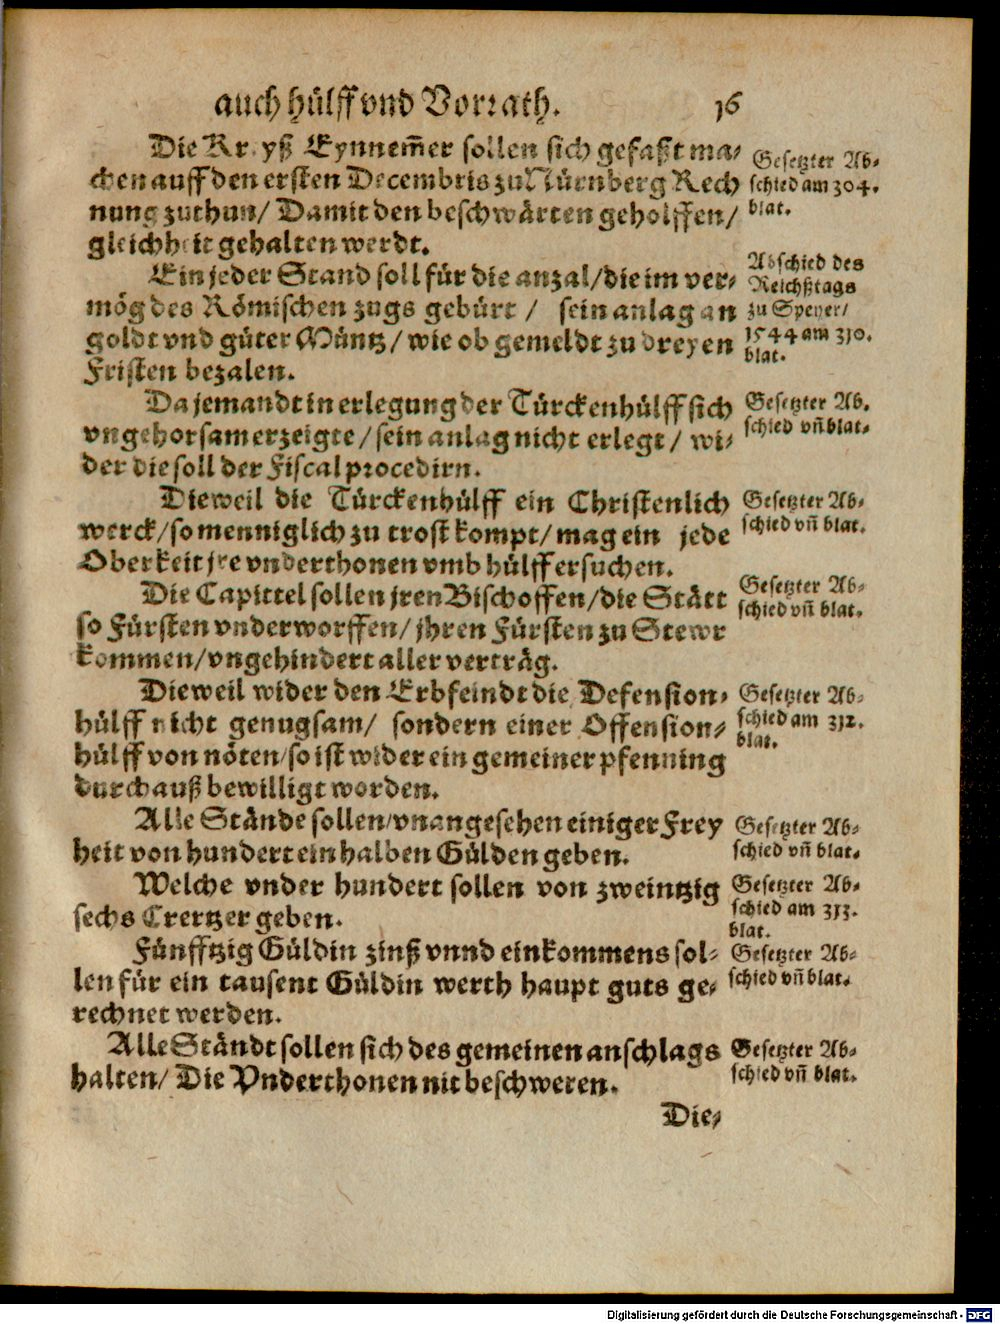 auch hülff vnd Vorrath. 16
Die Kreyß Eynnem̃er sollen sich gefaßt ma-
chen auff den ersten Decembris zu Nürnberg Rech
nung zuthun/ Damit den beschwärten geholffen/
gleichheit gehalten werdt.
Gesetzter Ab-
schied am 304.
blat.
Ein jeder Stand soll für die anzal/ die im ver-
mög des Römischen zugs gebürt / sein anlag an
goldt vnd güter Müntz/ wie ob gemeldt zu dreyen
Fristen bezalen.
Abschied des
Reichßtags
zu Speyer/
1544 am 310.
blat.
Da jemandt in erlegung der Türckenhülff sich
vngehorsam erzeigte/ sein anlag nicht erlegt/ wi-
der die soll der Fiscal procedirn.
Gesetzter Ab.
schied vñ blat.
Dieweil die Türckenhülff ein Christenlich
werck/ so menniglich zu trost kompt/ mag ein jede
Oberkeit jre vnderthonen vmb hülff ersuchen.
Gesetzter Ab-
schied vñ blat.
Die Capittel sollen jren Bischoffen/ die Stätt
so Fürsten vnderworffen/ jhren Fürsten zu Stewr
kommen/ vngehindert aller verträg.
Gesetzter Ab-
schied vñ blat.
Dieweil wider den Erbfeindt die Defension-
hülff nicht genugsam/ sondern einer Offension-
hülff von nöten/ so ist wider ein gemeiner pfenning
durchauß bewilligt worden.
Gesetzter Ab-
schied am 312.
blat.
Alle Stände sollen/ vnangesehen einiger Frey
heit von hundert ein halben Gülden geben.
Gesetzter Ab-
schied vñ blat.
Welche vnder hundert sollen von zweintzig
sechs Crertzer geben.
Gesetzter Ab-
schied am 313.
blat.
Fünfftzig Güldin zinß vnnd einkommens sol-
len für ein tausent Güldin werth haupt guts ge-
rechnet werden.
Gesetzter Ab-
schied vñ blat.
Alle Ständt sollen sich des gemeinen anschlags
halten/ Die Vnderthonen nit beschweren.
Gesetzter Ab-
schied vñ blat.
Die-
Digitalisierung gefördert durch die Deutsche Forschungsgemeinschaft - DFG